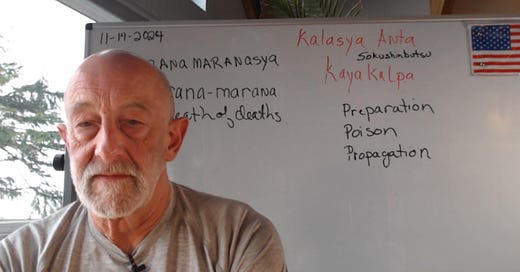 11-19-2024
RANA MARANASYA
rana-marana
death of deaths
Kalasya Anta
Sokushinbutsu
Kaya Kalpa
Preparation
Poison
Propagation